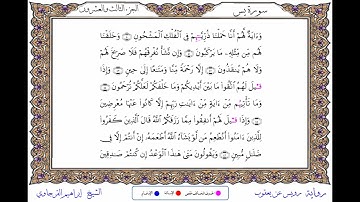 سورة يس
الجزء الثالث والعشرون
وَءَايَةٌ لَّهُمْ أَنَّا حَمَلْنَا ذُرِّيَّٰتِهِمْ فِي ٱلْفُلْكِ ٱلْمَشْحُونِ وَخَلَقْنَا
لَهُم مِّن مِّثْلِهِۦ مَا يَرْكَبُونَ وَإِن نَّشَأْ نُغْرِقْهُمْ فَلَا صَرِيخَ لَهُمْ
وَلَا هُمْ يُنقَذُونَ إِلَّا رَحْمَةً مِّنَّا وَمَتَٰعًا إِلَىٰ حِينٍ وَإِذَا
قِيلَ لَهُمُ ٱتَّقُوا۟ مَا بَيْنَ أَيْدِيكُمْ وَمَا خَلْفَكُمْ لَعَلَّكُمْ تُرْحَمُونَ
وَمَا تَأْتِيهِم مِّنْ ءَايَةٍ مِّنْ ءَايَٰتِ رَبِّهِمْ إِلَّا كَانُوا۟ عَنْهَا مُعْرِضِينَ
وَإِذَا قِيلَ لَهُمْ أَنفِقُوا۟ مِمَّا رَزَقَكُمُ ٱللَّهُ قَالَ ٱلَّذِينَ كَفَرُوا۟
لِلَّذِينَ ءَامَنُوٓا۟ أَنُطْعِمُ مَن لَّوْ يَشَآءُ ٱللَّهُ أَطْعَمَهُۥٓ إِنْ أَنتُمْ إِلَّا فِي
ضَلَٰلٍ مُّبِينٍ وَيَقُولُونَ مَتَىٰ هَٰذَا ٱلْوَعْدُ إِن كُنتُمْ صَٰدِقِينَ
برواية رويس عن يعقوب
الشيخ إبراهيم الترجاوي